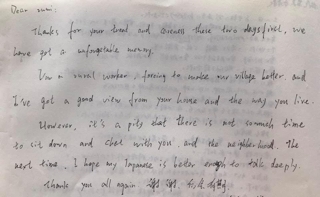 Dear mimi:
Thanks for your treat and kindness these two days first, we
have got a unforgetable memory.
I'm a rural worker, forcing to make our village better, and
I've got a good view from your house and the way you live.
However, it's a pity that there is not somuch time
to sit down and chat with you and the neighborhood. The
next time, I hope my Japanese is better enough to talk deeply.
Thank you all again. 谢谢